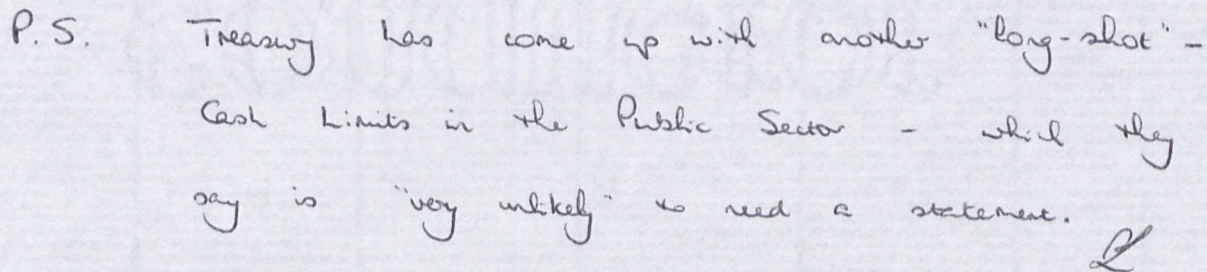 P.S. Treasury has come up with another "long-shot" -
Cash Limits in the Public Sector - which they
say is "very unlikely" to need a statement.